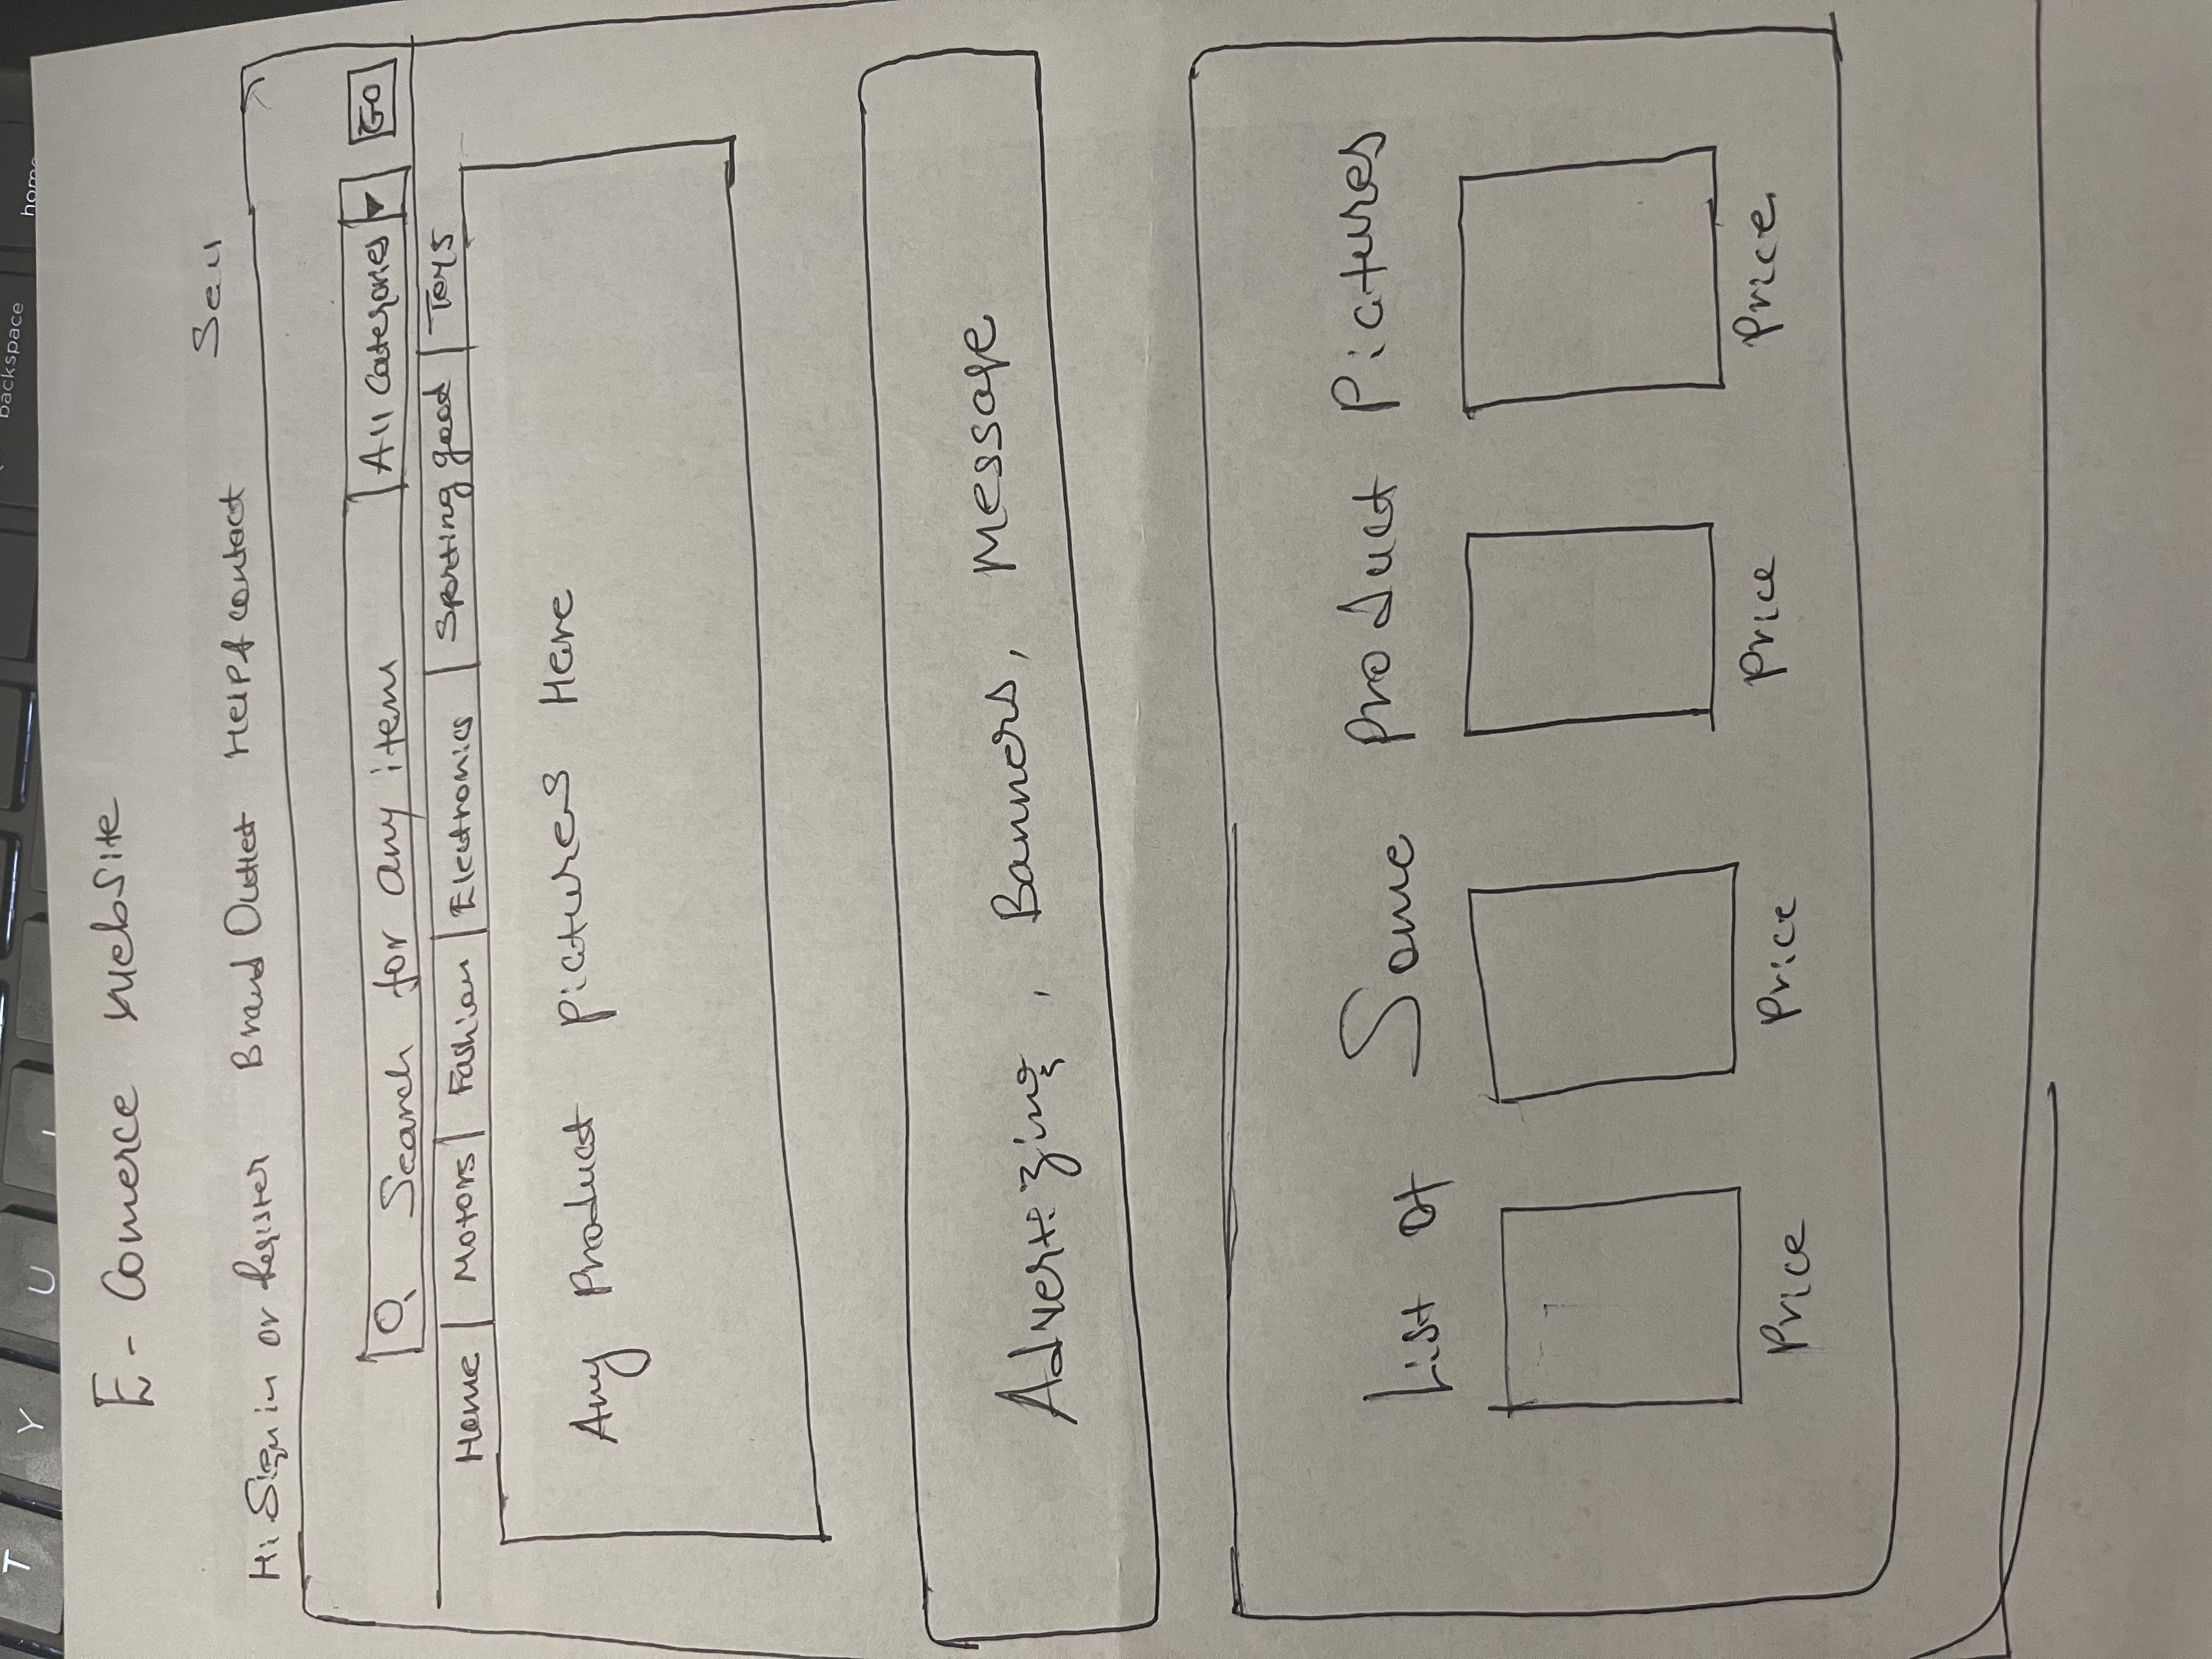 T Y U backspace home
E- Comerce Website
Hi Sign in or Register Brand Outlet Help & contact Sell
Search for any item All Categories GO
Home Motors Fashion Electronics Sporting good Toys
Any Product pictures Here
Advertizing, Banners, Message
List of Some Product Pictures
Price Price Price Price